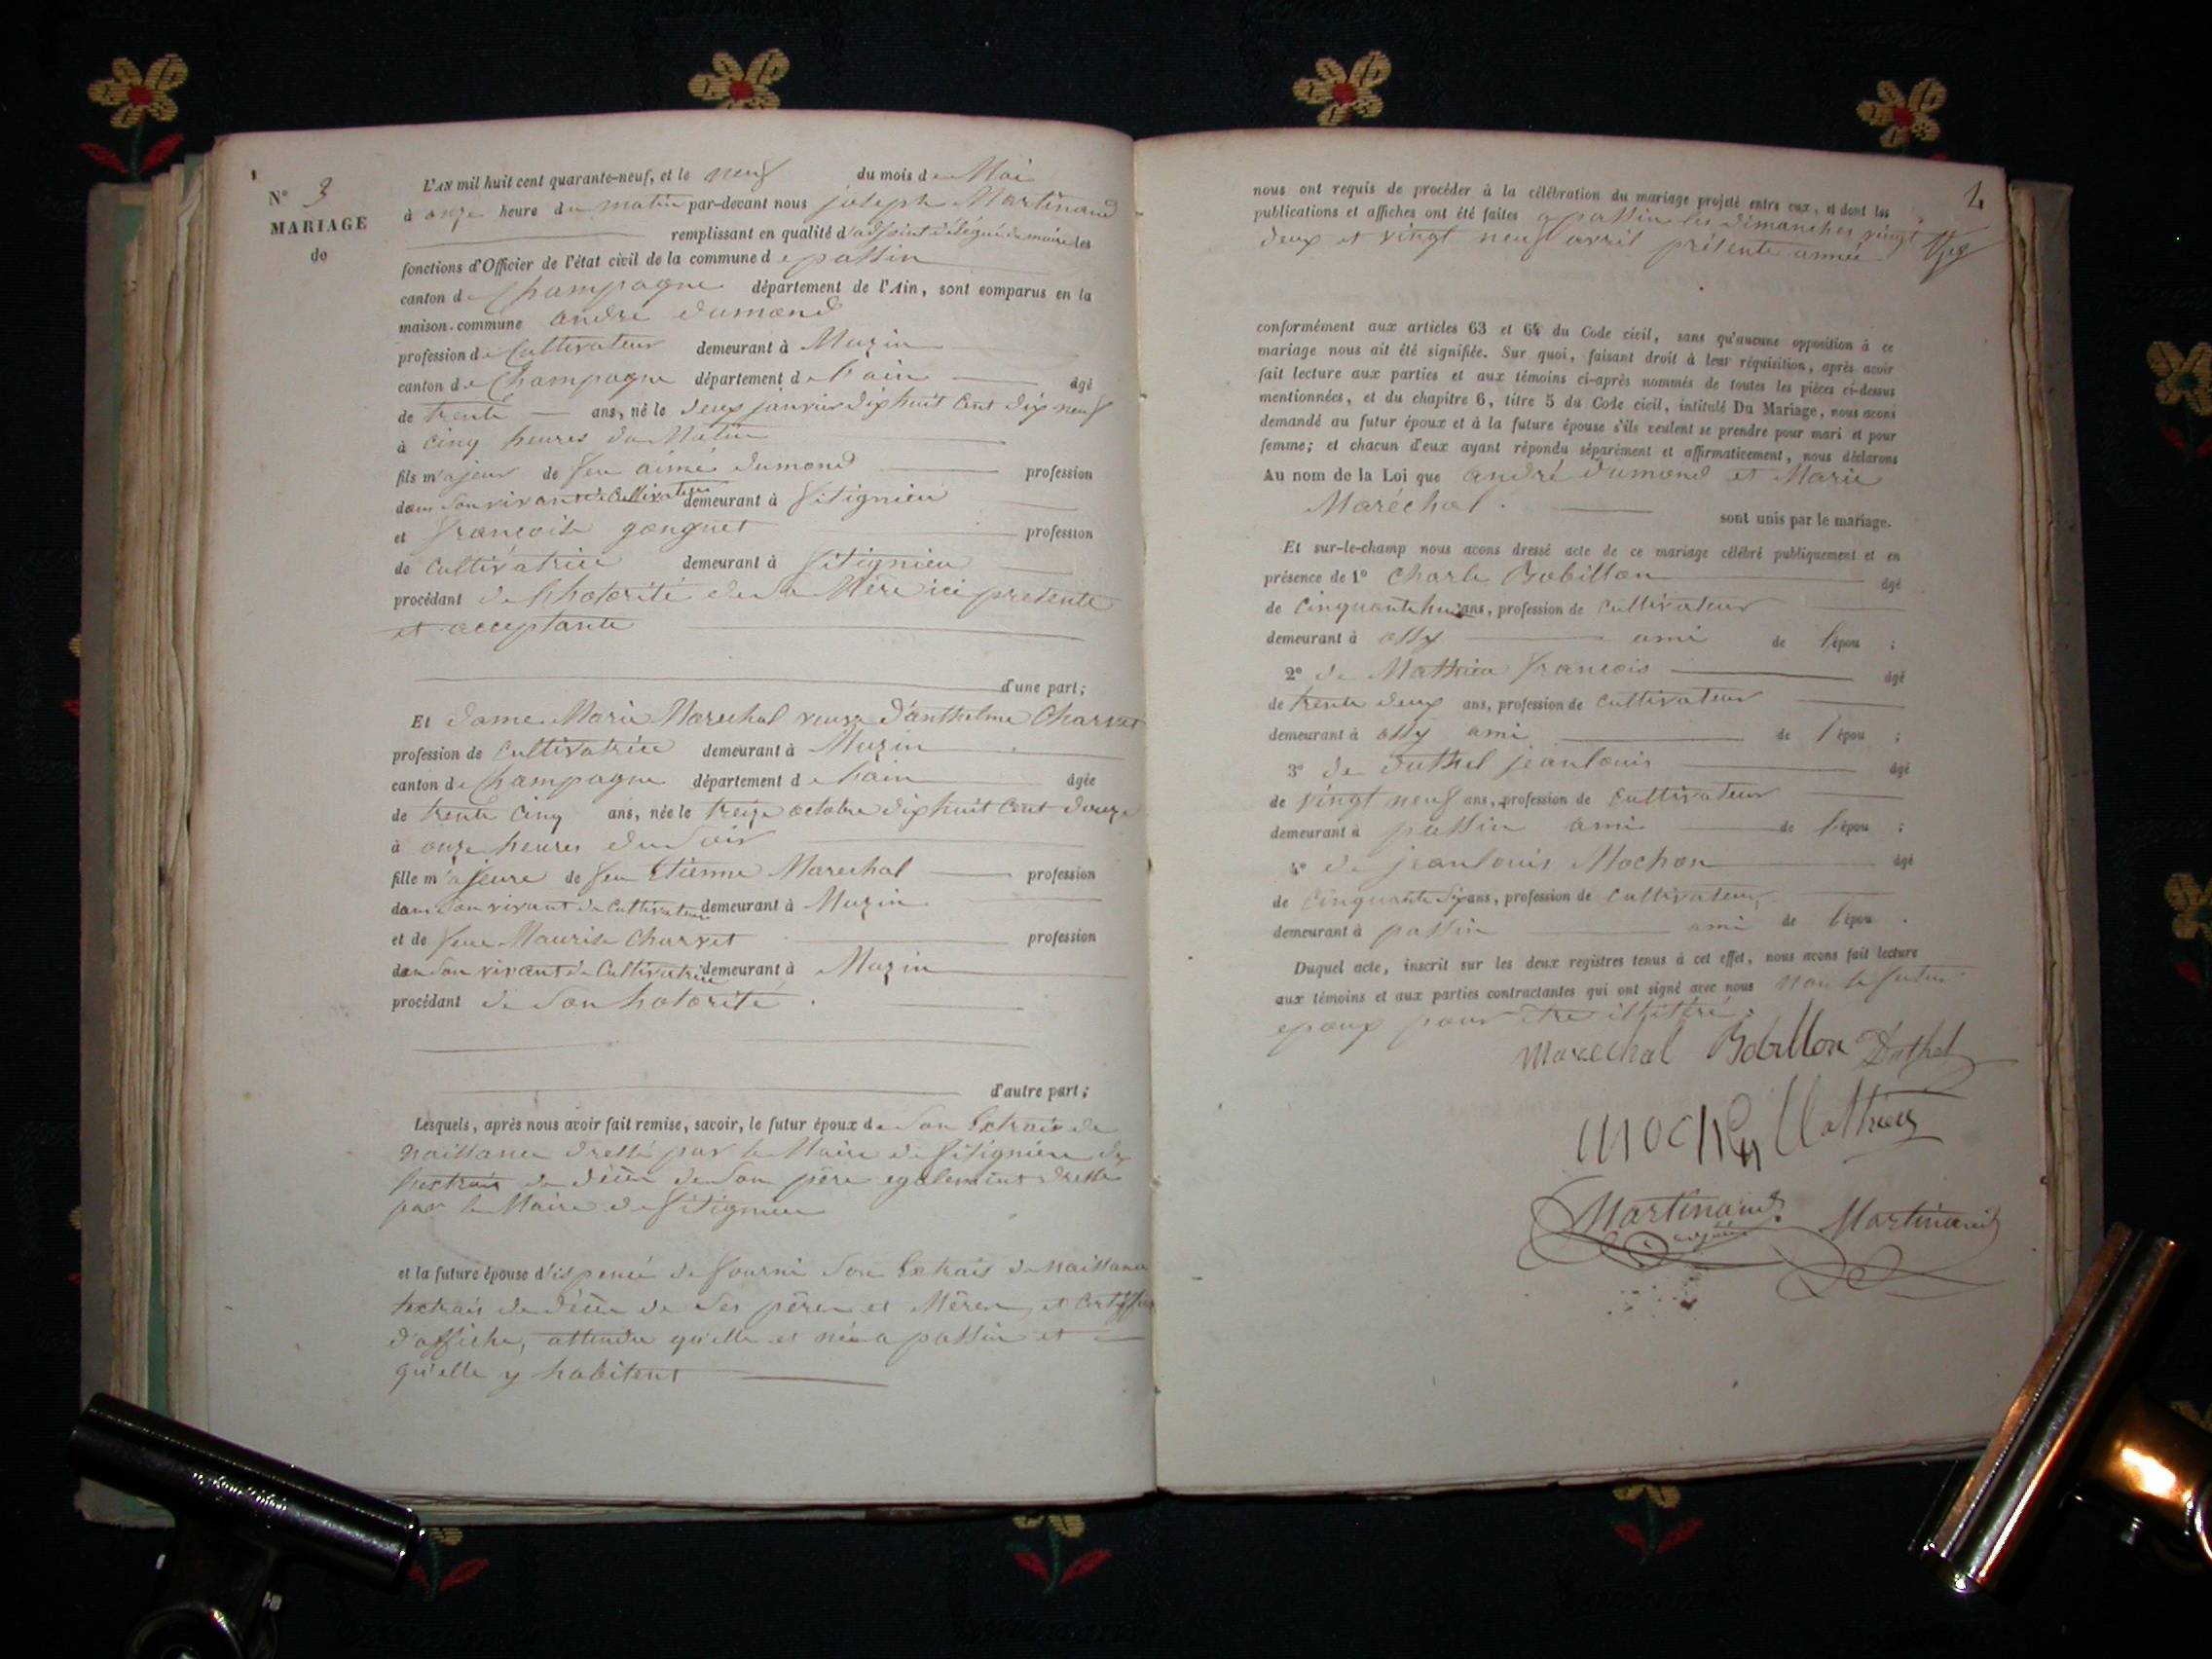 N° 3
MARIAGE
de
L'AN mil huit cent quarante-neuf, et le neuf du mois de Mai
à onze heure du matin par-devant nous joseph Martinand
remplissant en qualité d'adjoint délégué du maire les
fonctions d'Officier de l'état civil de la commune de passin
canton de Champagne département de l'Ain, sont comparus en la
maison-commune andré dumond
profession de Cultivateur demeurant à Muzin
canton de Champagne département de l'ain âgé
de trente ans, né le deux janvier dix huit Cent dix neuf
à Cinq heures du Matin
fils majeur de feu aimé dumond profession
dans son vivant de Cultivateur demeurant à fitignieu
et françoise gonguet profession
de Cultivatrice demeurant à fitignieu
procédant de lhotorité de sa Mère ici présente
et acceptante
d'une part;
Et dame Marie Marechal veuve d'anthelme Charvet
profession de Cultivatrice demeurant à Muzin
canton de Champagne département de l'ain âgée
de trente Cinq ans, née le treize octobre dix huit Cent douze
à onze heures du Soir
fille majeure de feu Etienne Marechal profession
dans son vivant de Cultivateur demeurant à Muzin
et de feue Maurise Charvet profession
dan son vivant de Cultivatrice demeurant à Muzin
procédant de son hotorité
d'autre part;
Lesquels, après nous avoir fait remise, savoir, le futur époux de son Extrais de
naissance dressé par le Maire de fitignieu de
lextrais de décès de son père egalement dressé
par le Maire de fitignieu
et la future épouse dispencé de fourni son Extrais de naissance
lextrais de décès de ses pères et Mères, et
d'affiche, attendu qu'elle et née a passin et
qu'elle y habitent
2
nous ont requis de procéder à la célébration du mariage projeté entre eux, et dont les
publications et affiches ont été faites a passin les dimanches vingt
deux et vingt neuf avril présente année
conformément aux articles 63 et 64 du Code civil, sans qu'aucune opposition à ce
mariage nous ait été signifiée. Sur quoi, faisant droit à leur réquisition, après avoir
fait lecture aux parties et aux témoins ci-après nommés de toutes les pièces ci-dessus
mentionnées, et du chapitre 6, titre 5 du Code civil, intitulé Du Mariage, nous avons
demandé au futur époux et à la future épouse s'ils veulent se prendre pour mari et pour
femme; et chacun d'eux ayant répondu séparément et affirmativement, nous déclarons
Au nom de la Loi que andré dumond et Marie
Maréchal. sont unis par le mariage.
Et sur-le-champ nous avons dressé acte de ce mariage célébré publiquement et en
présence de 1° Charle Bobillon âgé
de Cinquante huit ans, profession de Cultivateur
demeurant à ossy ami de l'épou ;
2° de Mathieu françois âgé
de trente deux ans, profession de Cultivateur
demeurant à ossy ami de l'épou ;
3° de duthel jeanlouis âgé
de vingt neuf ans, profession de Cultivateur
demeurant à passin ami de l'épou ;
4° de jeanlouis Mochon âgé
de Cinquante six ans, profession de Cultivateur
demeurant à passin ami de l'épou .
Duquel acte, inscrit sur les deux registres tenus à cet effet, nous avons fait lecture
aux témoins et aux parties contractantes qui ont signé avec nous non le futur
epoux pour être illitéré.
marechal Bobillon Duthel
mochon Mathieu
Martinand Martinand
adjoint